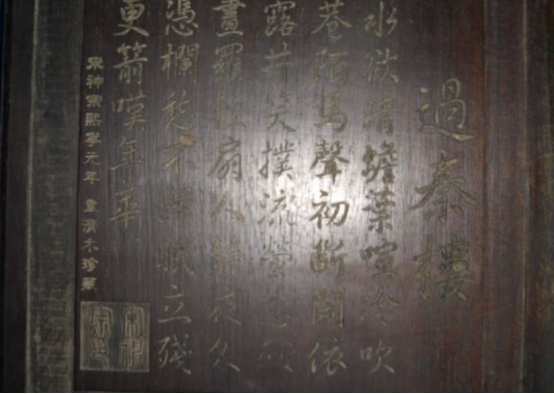 過秦樓
水欲清蟾葉喧冷吹
巷陌馬聲初斷閒依
露井笑撲流螢惹破
畫羅輕扇人靜夜久
憑欄愁不歸眠立殘
更箭嘆年華
宋神宗熙寧元年 木珍藏